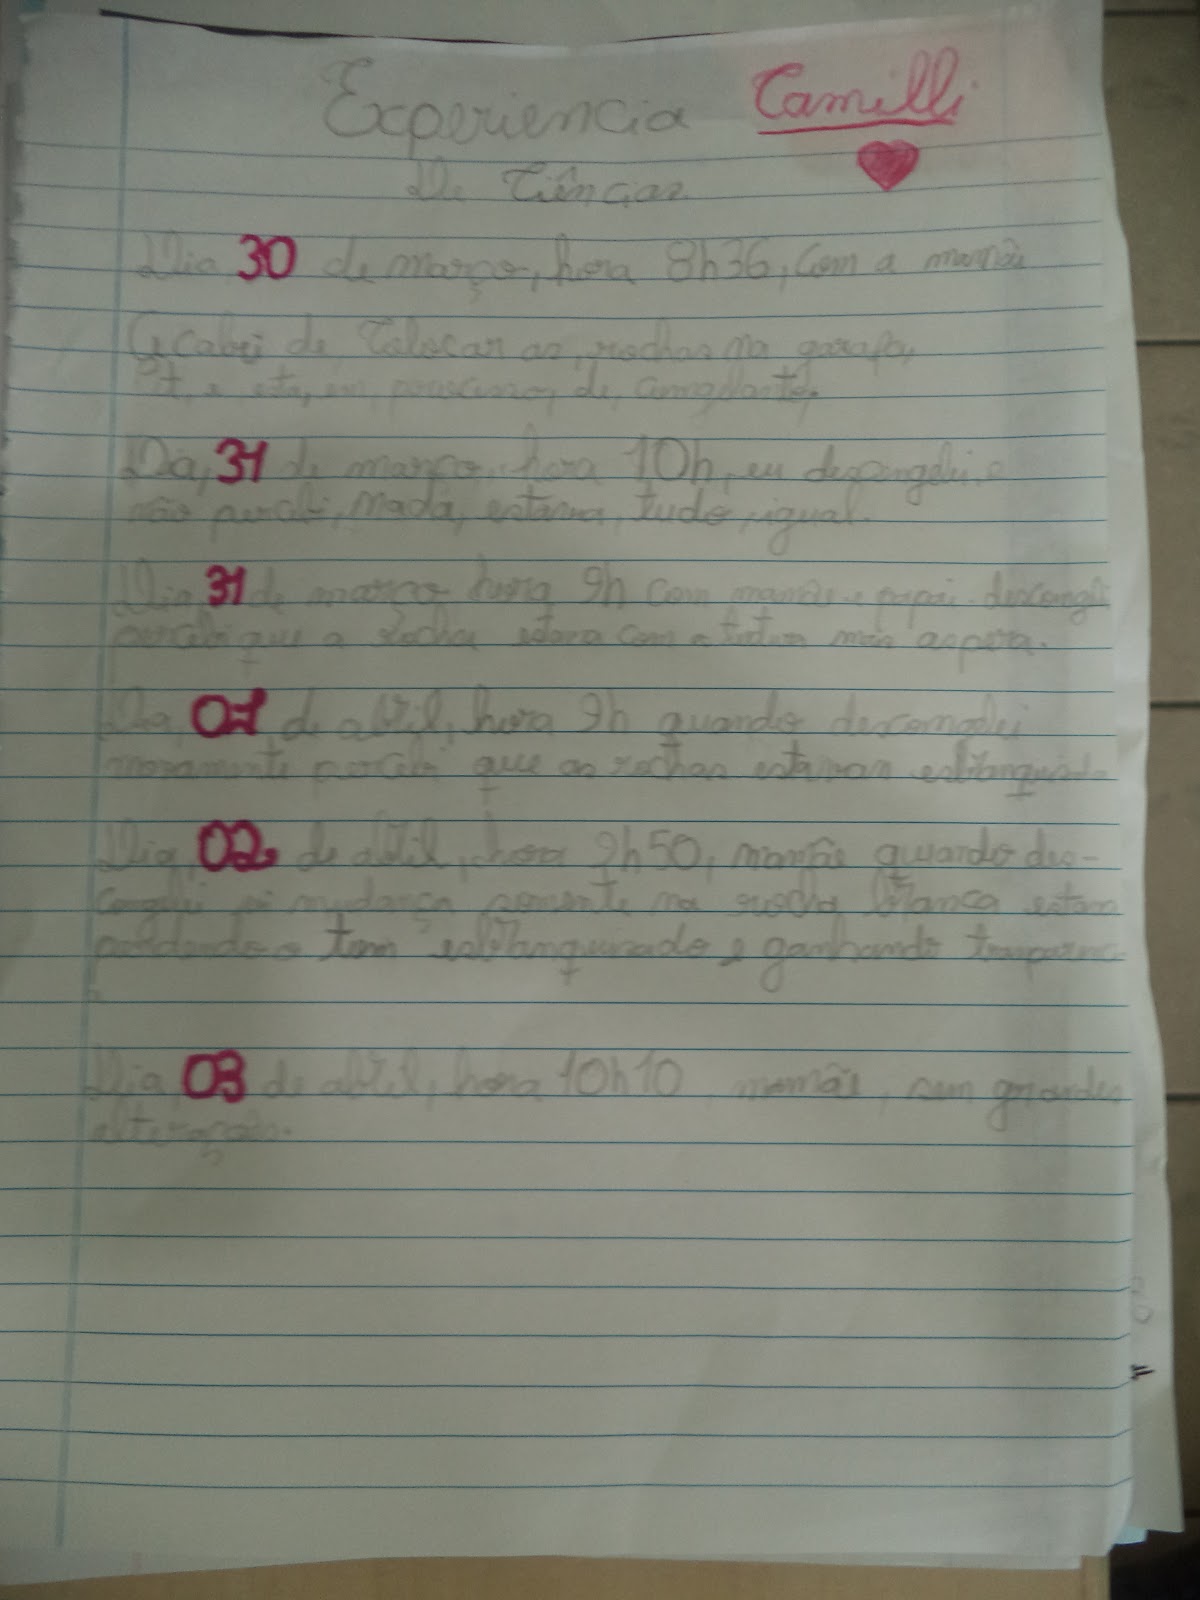 Experiencia Camilli
De Ciências
Dia 30 de março, hora 8h36, com a mamãe
Acabei de Colocar as, rochas na garafa,
Pt, e esta, em processo, de,
Dia, 31 de março, hora 10h, eu descongelei e
não percebi, nada, estava, tudo, igual.
Dia 31 de março hora 9h com mamãe e papai descongeli
percebi que a rocha estava com a mais aspera.
Dia 01 de abril, hora 9h quando descongelei
novamente percebi que as rochas estavam
Dia, 02 de abril, hora 9h50, mamãe quando des-
mudança somente na rocha branca
o tom esbranquisado e ganhando
Dia 03 de abril, hora 10h10 mamãe, sem grandes
alteração.